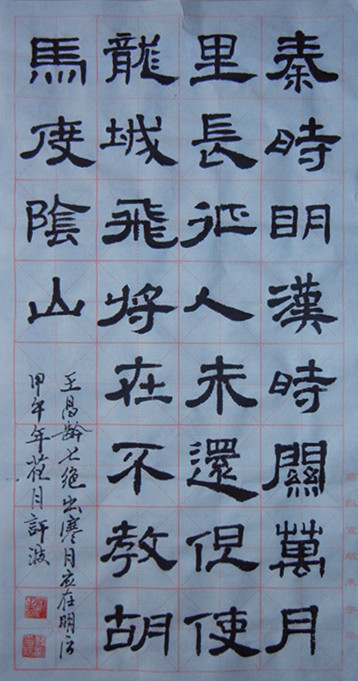 秦時明漢時關萬月
里長征人未還但使
龍城飛將在不教胡
馬度陰山
王昌齡七絕出塞月应在明后
甲午年花月許波